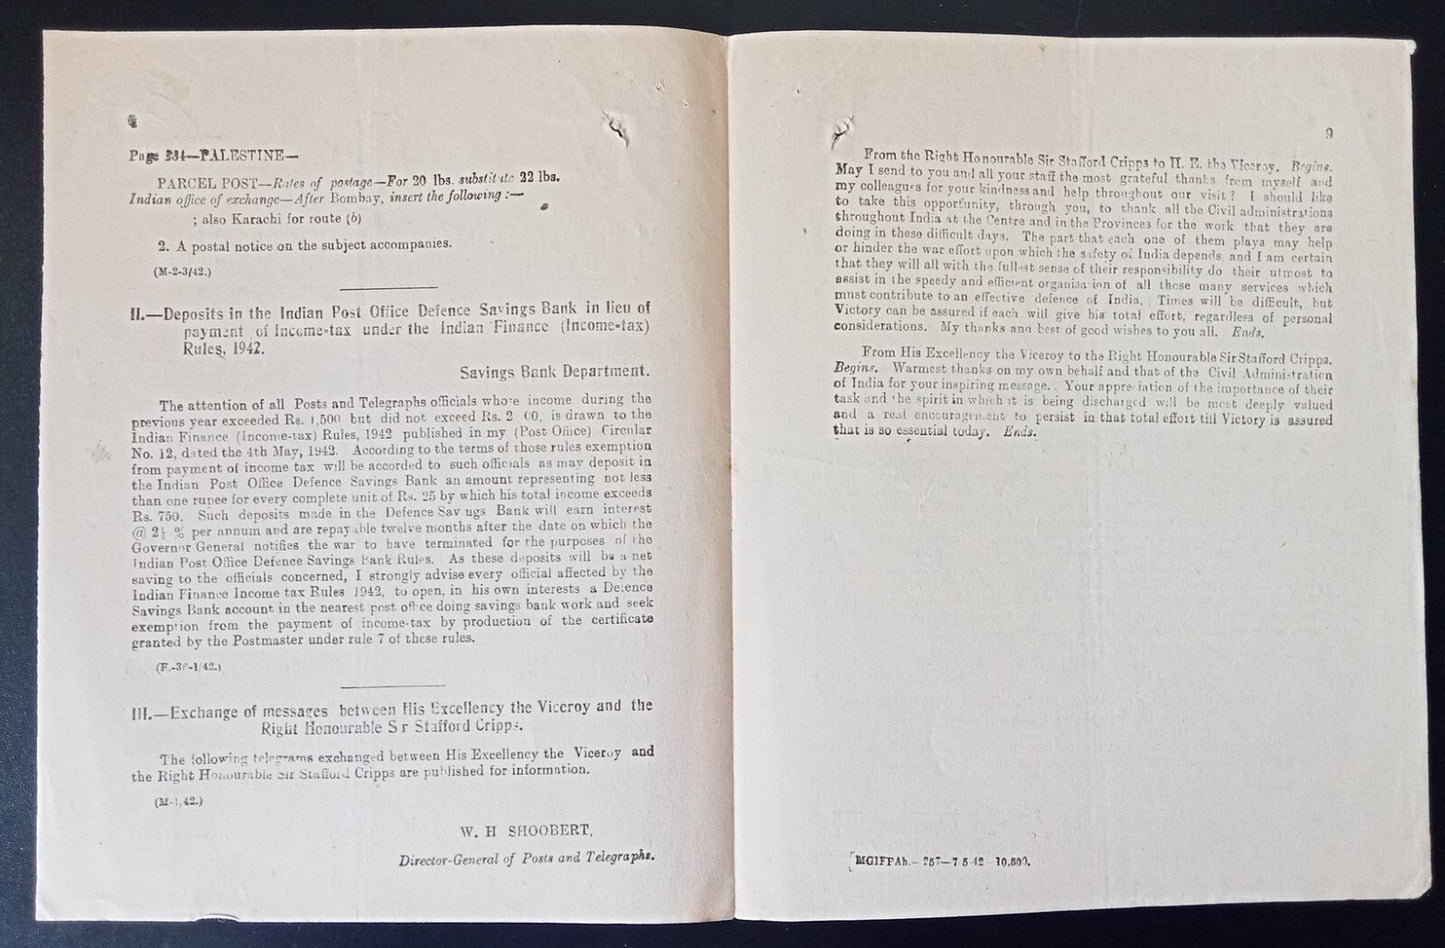 Page 234—PALESTINE—
PARCEL POST—Rates of postage—For 20 lbs. substitute 22 lbs.
Indian office of exchange—After Bombay, insert the following :—
; also Karachi for route (b)
2. A postal notice on the subject accompanies.
(M-2-3/42.)
II.—Deposits in the Indian Post Office Defence Savings Bank in lieu of
payment of Income-tax under the Indian Finance (Income-tax)
Rules, 1942.
Savings Bank Department.
The attention of all Posts and Telegraphs officials whose income during the
previous year exceeded Rs. 1,500 but did not exceed Rs. 2 00, is drawn to the
Indian Finance (Income-tax) Rules, 1942 published in my (Post Office) Circular
No. 12, dated the 4th May, 1942. According to the terms of those rules exemption
from payment of income tax will be accorded to such officials as may deposit in
the Indian Post Office Defence Savings Bank an amount representing not less
than one rupee for every complete unit of Rs. 25 by which his total income exceeds
Rs. 750. Such deposits made in the Defence Savings Bank will earn interest
@ 2½ % per annum and are repayable twelve months after the date on which the
Governor General notifies the war to have terminated for the purposes of the
Indian Post Office Defence Savings Bank Rules. As these deposits will be a net
saving to the officials concerned, I strongly advise every official affected by the
Indian Finance Income tax Rules 1942, to open, in his own interests a Defence
Savings Bank account in the nearest post office doing savings bank work and seek
exemption from the payment of income-tax by production of the certificate
granted by the Postmaster under rule 7 of these rules.
III.—Exchange of messages between His Excellency the Viceroy and the
Right Honourable S r Stafford Cripps.
The following telegrams exchanged between His Excellency the Viceroy and
the Right Honourable Sir Stafford Cripps are published for information.
W. H SHOOBERT,
Director-General of Posts and Telegraphs.
9
From the Right Honourable Sir Stafford Cripps to H. E. the Viceroy. Begins.
May I send to you and all your staff the most grateful thanks from myself and
my colleagues for your kindness and help throughout our visit? I should like
to take this opportunity, through you, to thank all the Civil administrations
throughout India at the Centre and in the Provinces for the work that they are
doing in these difficult days. The part that each one of them plays may help
or hinder the war effort upon which the safety of India depends and I am certain
that they will all with the fullest sense of their responsibility do their utmost to
assist in the speedy and efficient organisation of all those many services which
must contribute to an effective defence of India. Times will be difficult, but
Victory can be assured if each will give his total effort, regardless of personal
considerations. My thanks and best of good wishes to you all. Ends.
From His Excellency the Viceroy to the Right Honourable Sir Stafford Cripps.
Begins. Warmest thanks on my own behalf and that of the Civil Administration
of India for your inspiring message. Your appreciation of the importance of their
task and the spirit in which it is being discharged will be most deeply valued
and a real encouragement to persist in that total effort till Victory is assured
that is so essential today. Ends.
MGIFPAh.— 257—7-5-42—10,500.